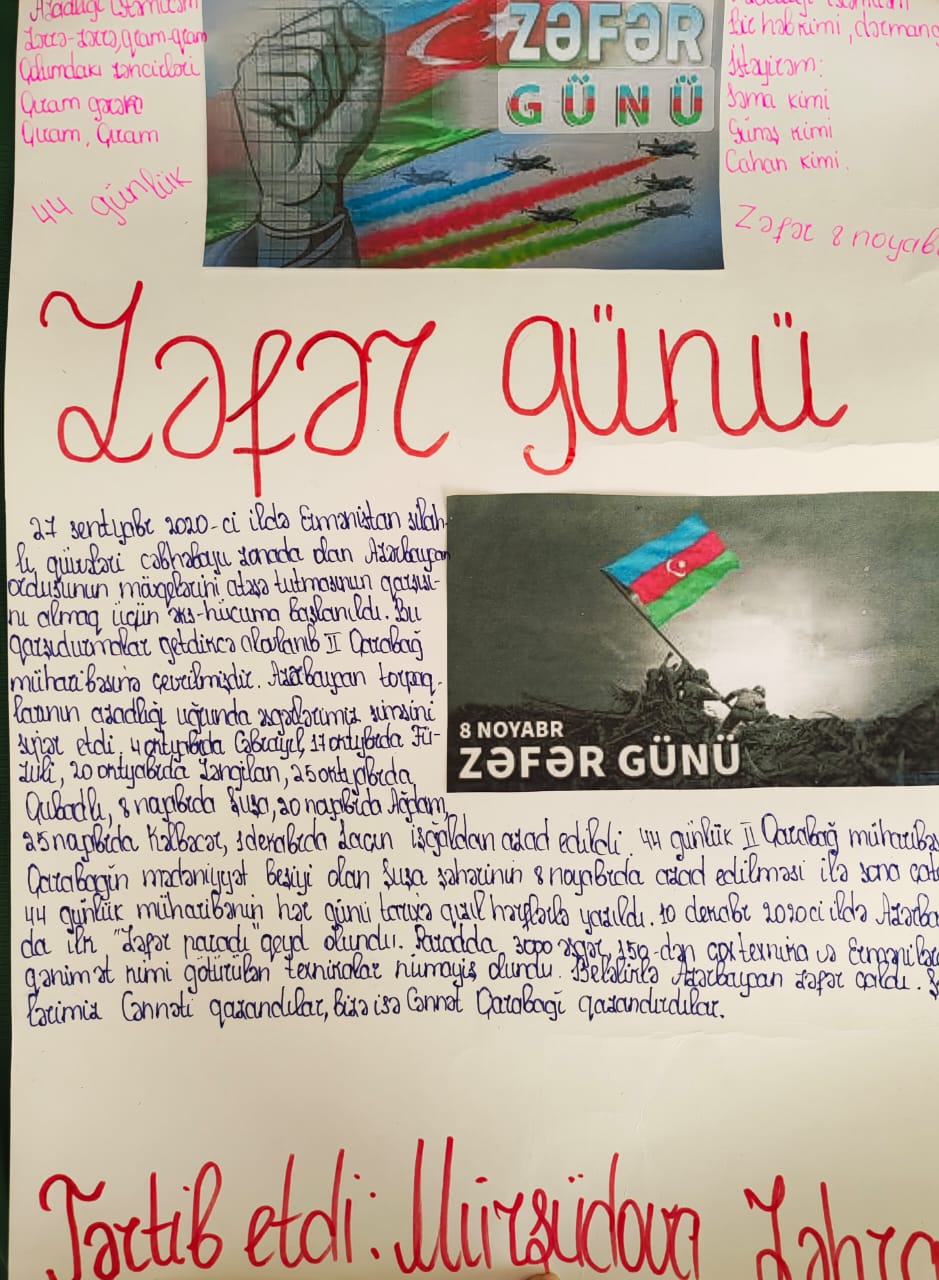 Azadlığı istəmirəm
Zərrə-zərrə, qram-qram
Qolumdakı zəncirləri
Qıram gərək
Qıram, Qıram
44 günlük
ZƏFƏR
GÜNÜ
Bir həb kimi, dərman
İstəyirəm:
Səma kimi
Günəş kimi
Cahan kimi.
Zəfər 8 noyab
Zəfər günü
27 sentyabr 2020-ci ildə Ermənistan silah-
lı qüvvələri cəbhəboyu zonada olan Azərbaycan
ordusunun mövqelərini atəşə tutmasının qarşısı-
nı almaq üçün əks-hücuma başlanıldı. Bu
qarşıdurmalar getdikcə alovlanıb II Qarabağ
müharibəsinə çevrilmişdir. Azərbaycan torpaq-
larının azadlığı uğrunda əsgərlərimiz sinəsini
sipər etdi. 4 oktyabrda Cəbrayıl, 17 oktyabrda Fü-
zuli, 20 oktyabrda Zəngilan, 25 oktyabrda
Qubadlı, 8 noyabrda Şuşa, 20 noyabrda Ağdam,
25 noyabrda Kəlbəcər, 1 dekabrda Laçın işğaldan azad edildi. 44 günlük II Qarabağ müharibəs
Qarabağın mədəniyyət beşiyi olan Şuşa şəhərinin 8 noyabrda azad edilməsi ilə sona çat
44 günlük müharibənin hər günü tarixə qızıl hərflərlə yazıldı. 10 dekabr 2020ci ildə Azərba
da ilk "Zəfər paradı" qeyd olundu. Paradda 3000 əsgər, 150-dən çox texnika və Ermənilər
qənimət kimi götürülən texnikalar nümayiş olundu. Beləliklə Azərbaycan zəfər çaldı. Ş
lərimiz Cənnəti qazandılar, bizə isə Cənnət Qarabağı qazandırdılar.
8 NOYABR
ZƏFƏR GÜNÜ
Tərtib etdi: Mürşüdova Zəhra